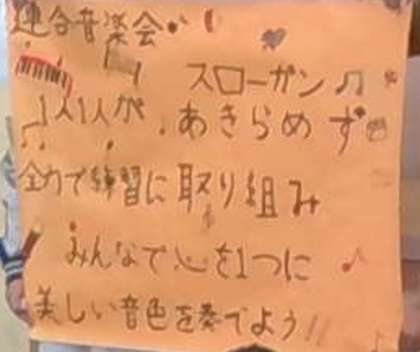 連合音楽会
スローガン
1人1人が、あきらめず
全力で練習に取り組み
みんなで心を1つに
美しい音色を奏でよう!!